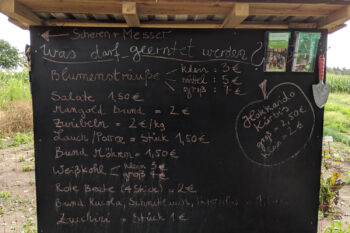 ← Scheren + Messer
Was darf geerntet werden?
Blumensträuße
klein : 3€
mittel : 5€
groß : 7€
Salate 1,50€
Mangold Bund = 2€
Zwiebeln = 2€/kg
Lauch/Porree = Stück 1,50€
Bund Möhren = 1,50€
Weißkohl
klein
groß
Rote Beete (4 Stück) = 2€
Bund Rucola, Schnittlauch,
Zucchini = Stück 1€
Hokkaido
Kürbis
groß
klein